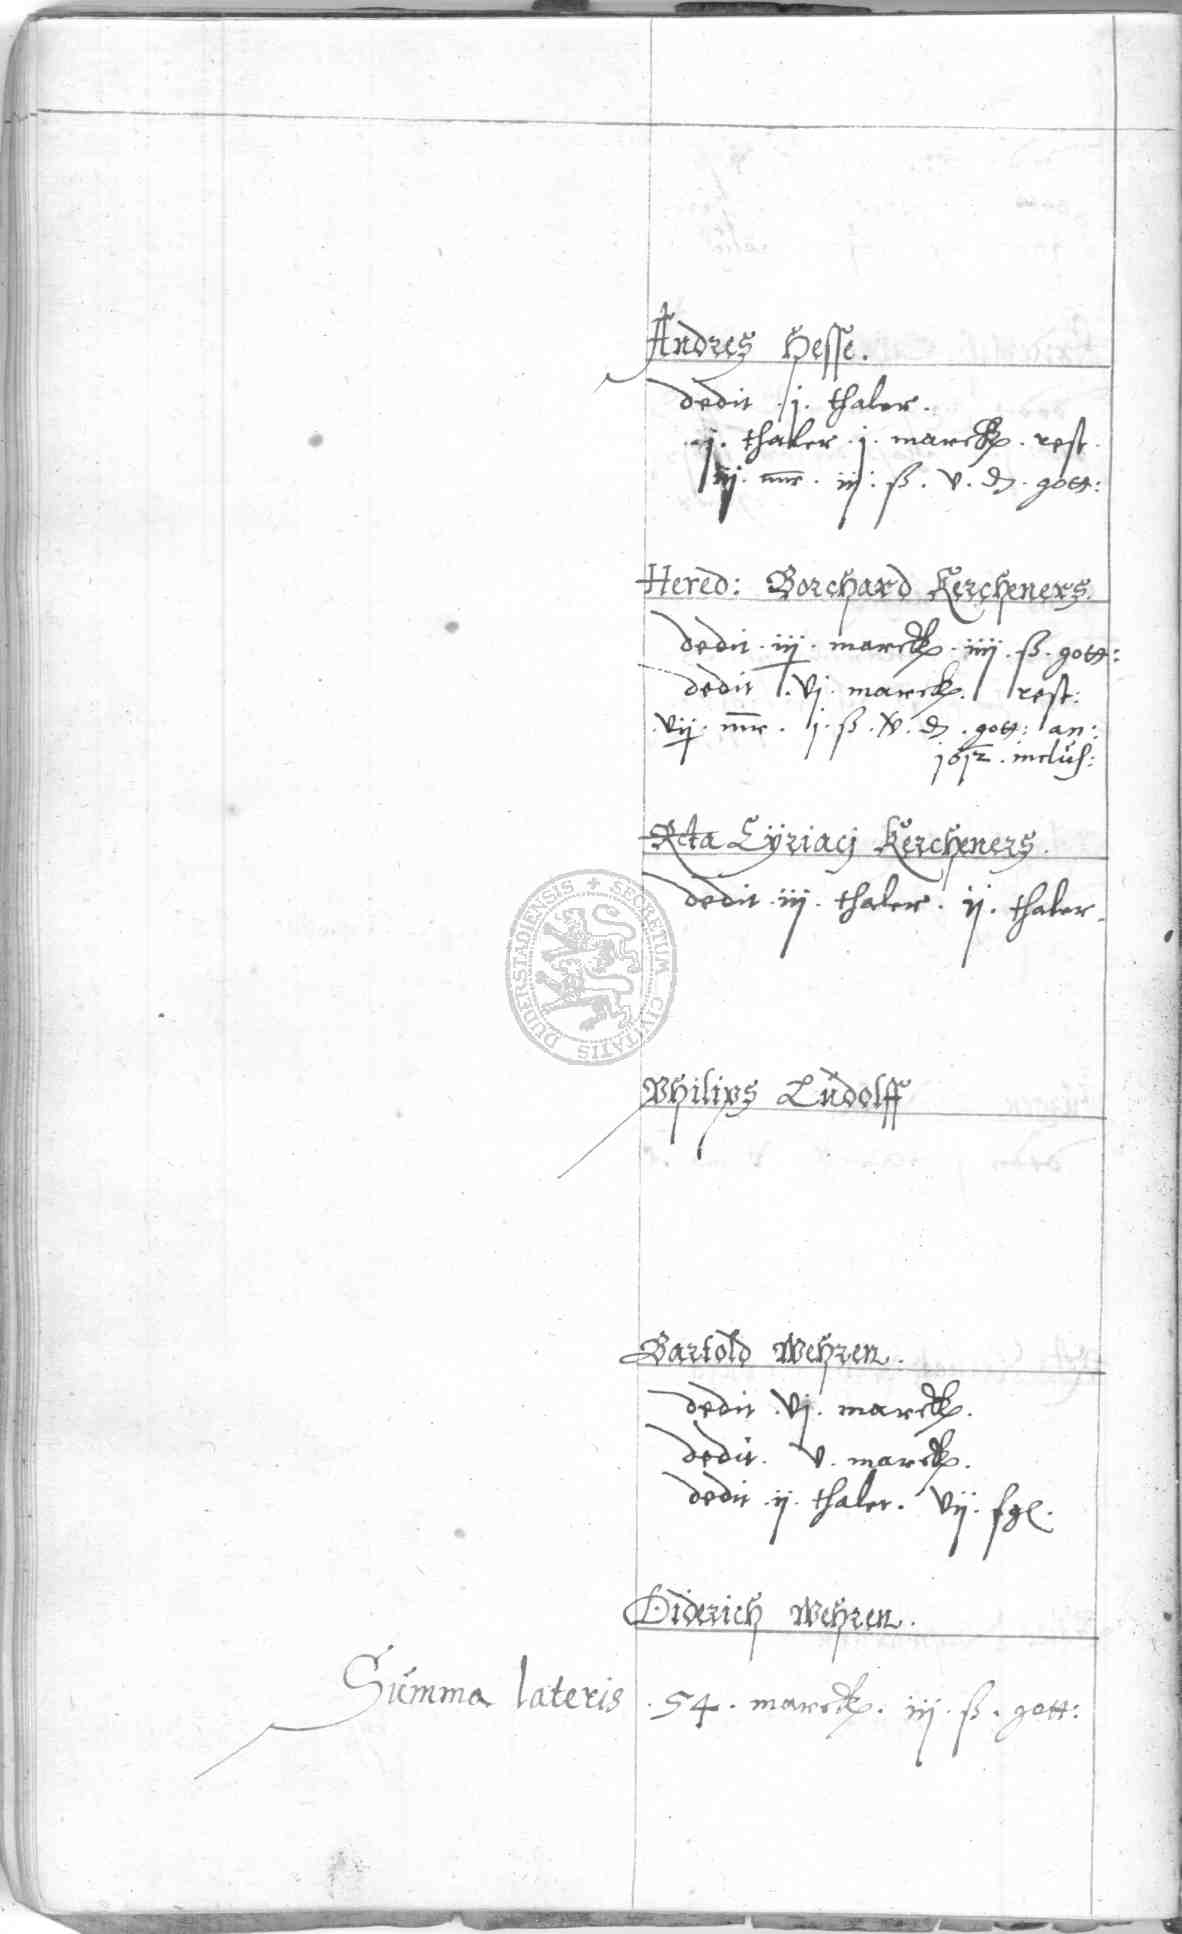 Andres Hesse.
dedit .j. thaler.
.ij. thaler .j. marck. rest.
iij. mr. iij: ß. v. d. gott:
Hered: Borchard Kercheners.
dedit .iij. marck. iiij. ß. gott:
dedit .vj. marck. rest:
.vij. mr. j. ß. x. d. gott: an:
1612. inclus:
Rcta Cÿriacj Kercheners.
dedit .iij. thaler. ij. thaler.
SECRETUM CIVITATIS DUDERSTADIENSIS
Philips Ludolff
Bartold Wehren.
dedit .vj. marck.
dedit. v. marck.
dedit .ij. thaler. vij. ßgl.
Diderich Wehren.
Summa lateris .54. marck. iij. ß. gott: